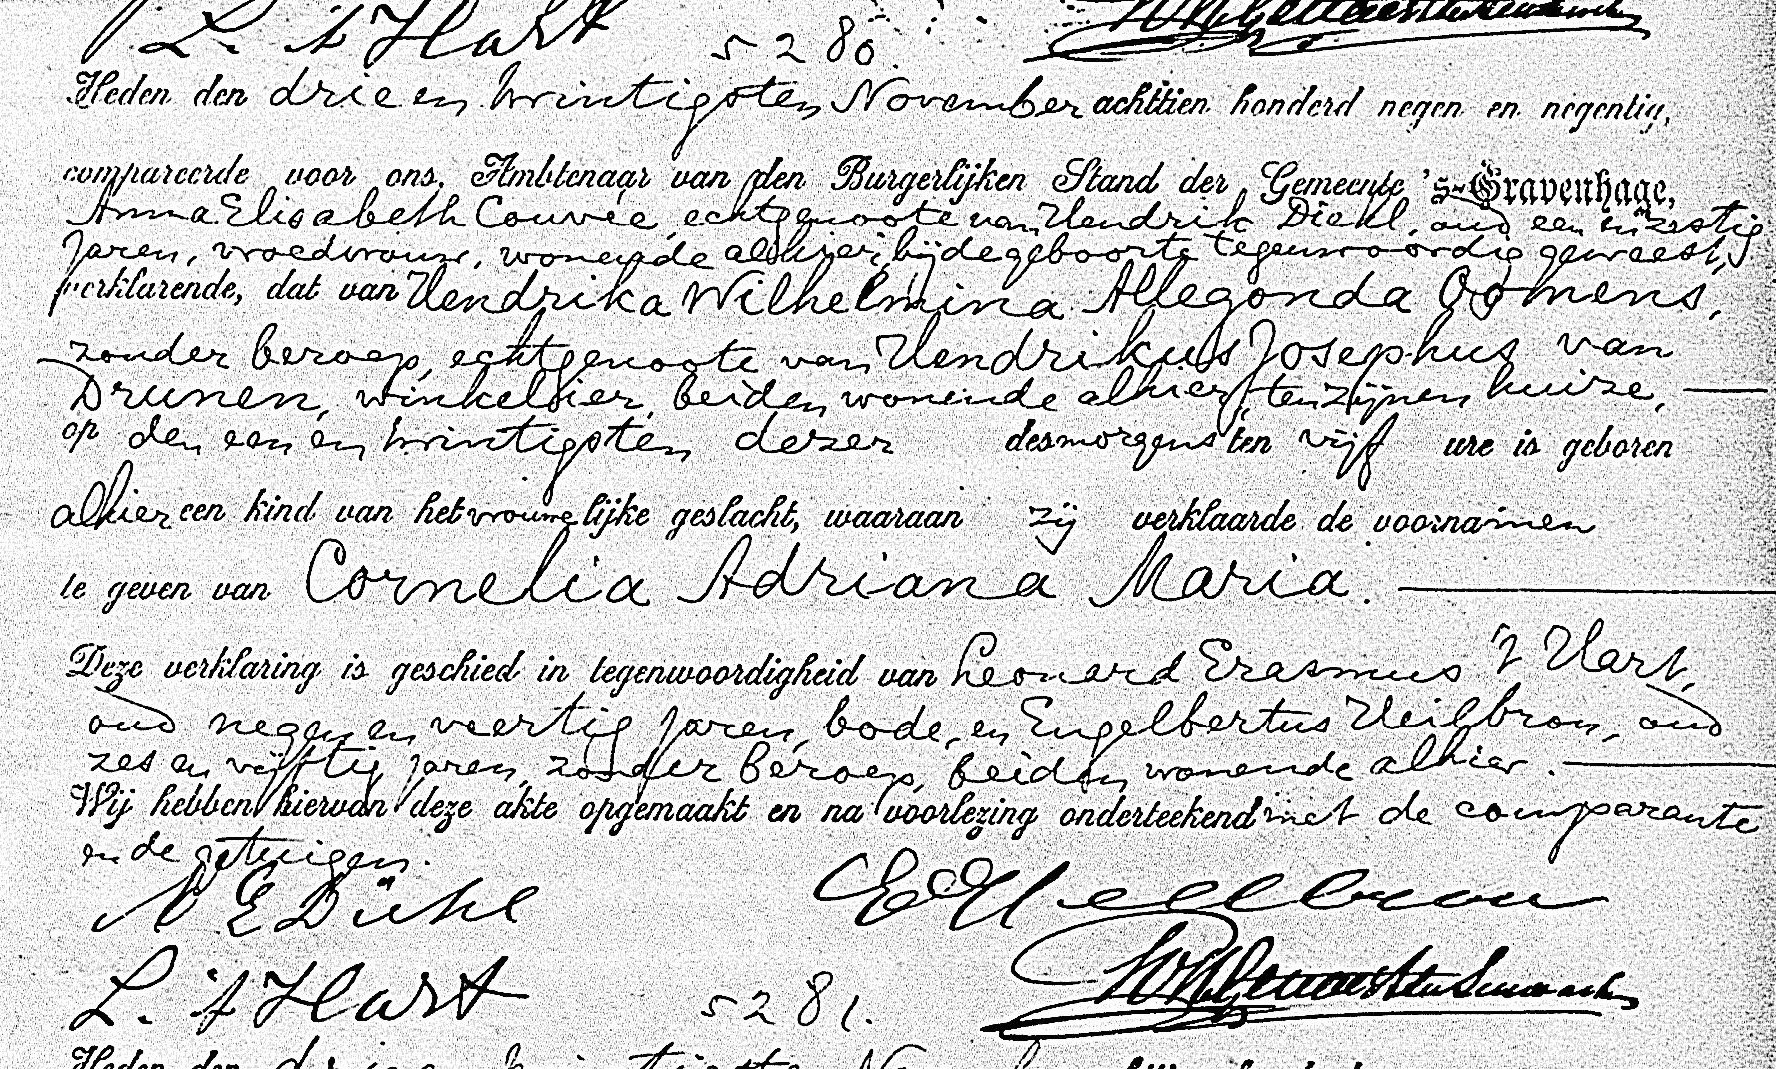 L. 't Hart
5280.
Heden den drie en twintigsten November achttien honderd negen en negentig,
compareerde voor ons, Ambtenaar van den Burgerlijken Stand der Gemeente 's-Gravenhage,
Anna Elisabeth Couvée, echtgenoote van Hendrik Diehl, oud een en zestig
jaren, vroedvrouw, wonende alhier, bij de geboorte tegenwoordig geweest,
verklarende, dat van Hendrika Wilhelmina Allegonda Oomens,
zonder beroep, echtgenoote van Hendrikus Josephus van
Drunen, winkelier, beiden wonende alhier, ten zijnen huize,
op den een en twintigsten dezer des morgens ten vijf ure is geboren
alhier een kind van het vrouwelijke geslacht, waaraan zij verklaarde de voornamen
te geven van Cornelia Adriana Maria.
Deze verklaring is geschied in tegenwoordigheid van Leonard Erasmus 't Hart,
oud negen en veertig jaren, bode, en Engelbertus Heilbron, oud
zes en vijftig jaren, zonder beroep, beiden wonende alhier.
Wij hebben hiervan deze akte opgemaakt en na voorlezing onderteekend met de comparante
en de getuigen.
E Heilbron
L. 't Hart
5281.
Heden den drie en twintigsten November